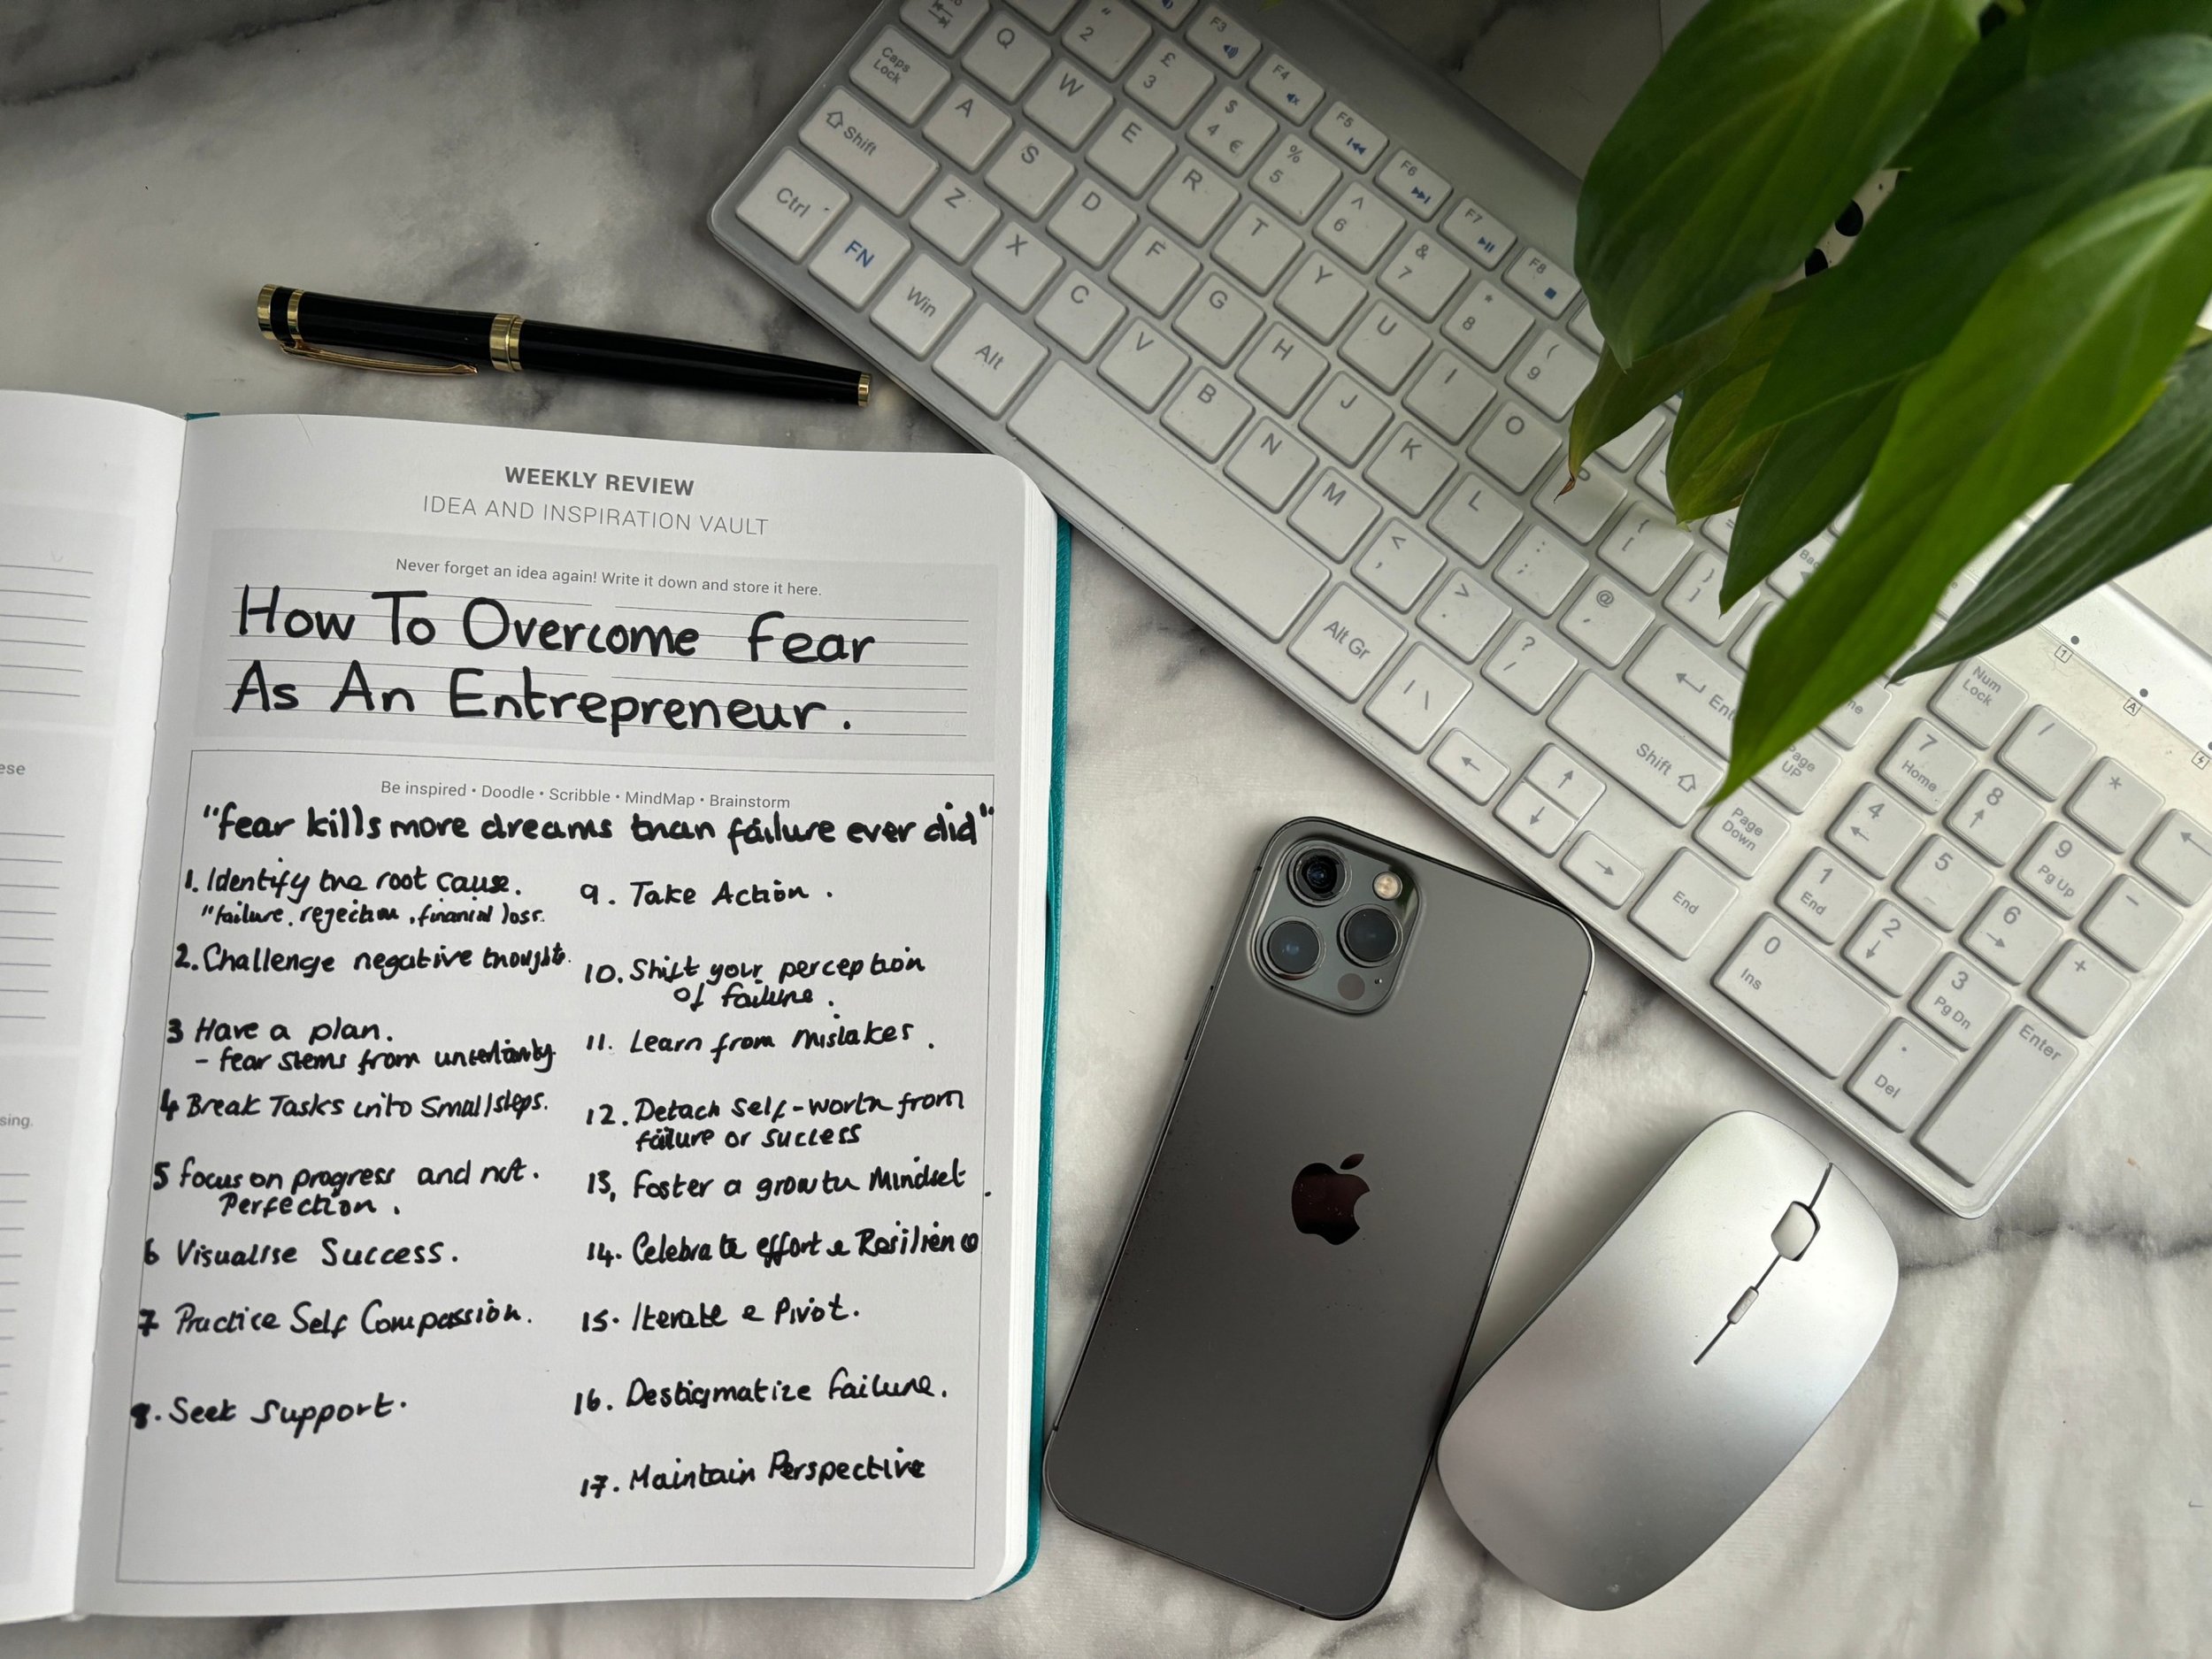 WEEKLY REVIEW
IDEA AND INSPIRATION VAULT
Never forget an idea again! Write it down and store it here.
How To Overcome Fear
As An Entrepreneur.
Be inspired • Doodle • Scribble • MindMap • Brainstorm
"fear kills more dreams than failure ever did"
1. Identify the root cause.
"failure, rejection, financial loss.
2. Challenge negative thoughts.
3 Have a plan.
- fear stems from uncertainty.
4 Break Tasks into Small steps.
5 focus on progress and not.
Perfection.
6 Visualise Success.
7 Practice Self Compassion.
8. Seek Support.
9. Take Action.
10. Shift your perception
of failure.
11. Learn from mistakes.
12. Detach self-worth from
failure or success
13, foster a growth Mindset.
14. Celebrate effort & Resilience
15. Iterate & Pivot.
16. Destigmatize failure.
17. Maintain Perspective
ese
sing.
Q
" 2
£ 3
F3
F4
F5
F6
F7
F8
Caps Lock
A
W
E
$ 4 €
% 5
^ 6
& 7
* 8
( 9
Shift
Z
S
D
R
T
Y
U
I
O
P
Ctrl
FN
Win
Alt
X
C
F
V
G
B
H
N
J
M
K
L
< ,
> .
: ;
? /
@ '
{ [
} ]
Alt Gr
| \
Shift
Page UP
Page Down
End
Num Lock
/
*
-
+
7 Home
8
9 Pg Up
4
5
6
1 End
2
3 Pg Dn
0 Ins
. Del
Enter
1
A